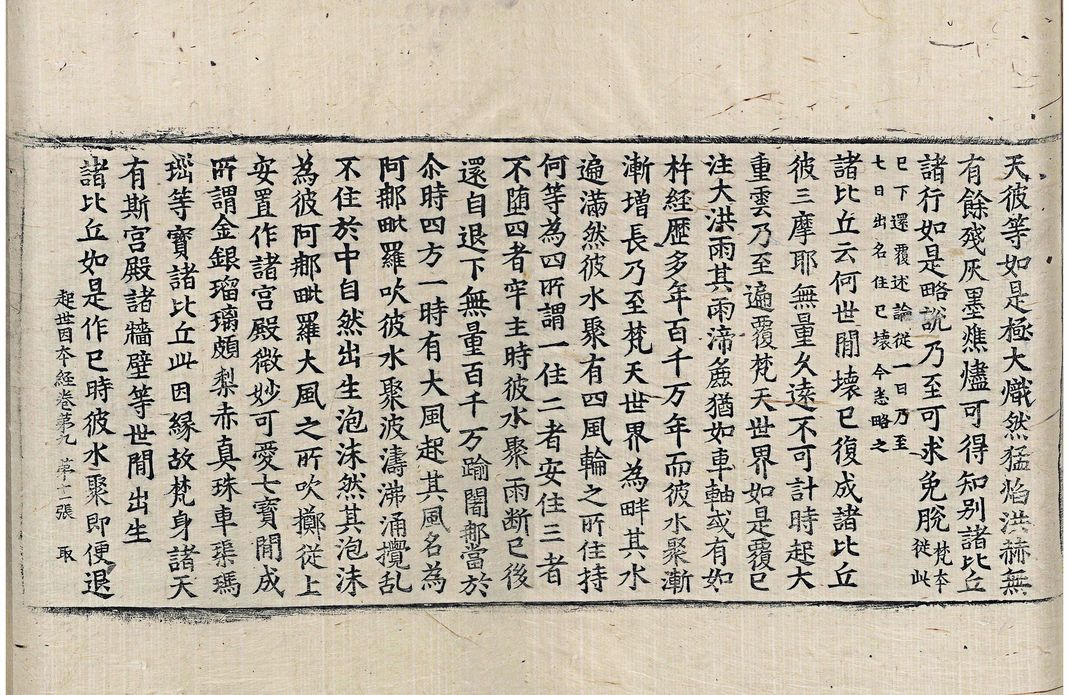 天彼等如是極大熾然猛焰洪赫無
有餘殘灰墨燋燼可得知別諸比丘
諸行如是略說乃至可求免脫梵本從此
已下還覆述論從一日乃至
七日出名住已壞今悉略之
諸比丘云何世閒壞已復成諸比丘
彼三摩耶無量久遠不可計時起大
重雲乃至遍覆梵天世界如是覆已
注大洪雨其雨渧麁猶如車軸或有如
杵經歷多年百千万年而彼水聚漸
漸增長乃至梵天世界為畔其水
遍滿然彼水聚有四風輪之所住持
何等為四所謂一住二者安住三者
不墮四者牢主時彼水聚雨断已後
還自退下無量百千万踰闍那當於
尒時四方一時有大風起其風名為
阿那毗羅吹彼水聚波濤沸涌攪乱
不住於中自然出生泡沫然其泡沫
為彼阿那毗羅大風之所吹擲從上
安置作諸宮殿微妙可愛七寶閒成
所謂金銀瑠璃頗梨赤真珠車渠瑪
瑙等寶諸比丘此因緣故梵身諸天
有斯宮殿諸牆壁等世閒出生
諸比丘如是作已時彼水聚即便退
起世因本經卷第九 第十一張 取